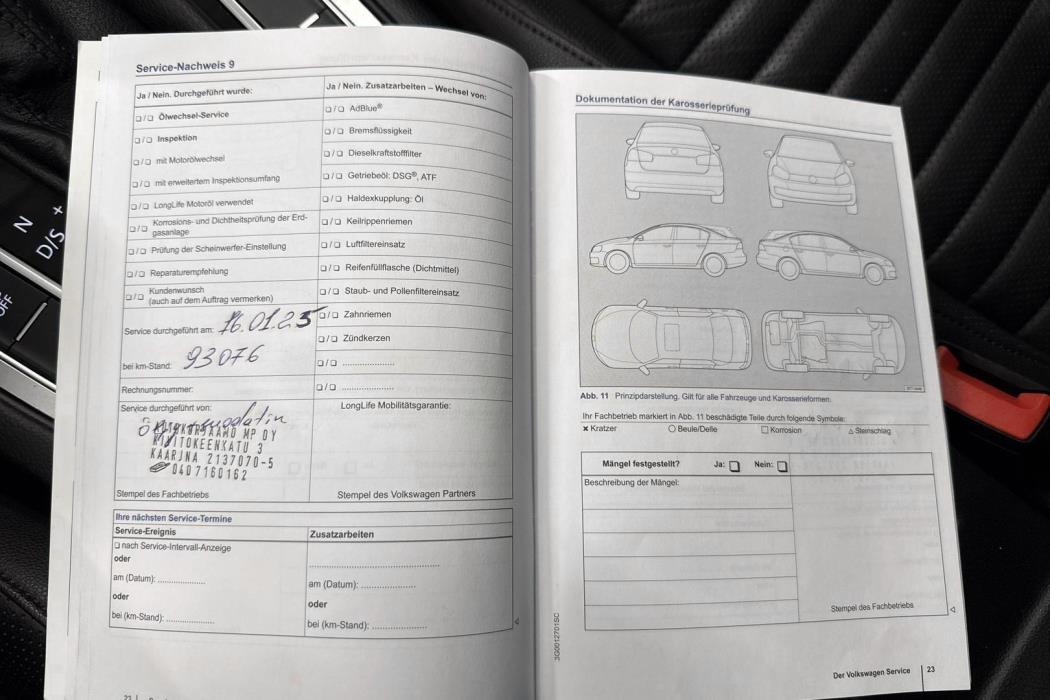 Service-Nachweis 9
Ja / Nein. Durchgeführt wurde:
❏/❏ Ölwechsel-Service
❏/❏ Inspektion
❏/❏ mit Motorölwechsel
❏/❏ mit erweitertem Inspektionsumfang
❏/❏ LongLife Motoröl verwendet
❏/❏ Korrosions- und Dichtheitsprüfung der Erd-
gasanlage
❏/❏ Prüfung der Scheinwerfer-Einstellung
❏/❏ Reparaturempfehlung
❏/❏ Kundenwunsch
(auch auf dem Auftrag vermerken)
Service durchgeführt am: 16.01.25
bei km-Stand: 93076
Rechnungsnummer:
Service durchgeführt von:
KAARJNA 2137070-5
0407160162
Stempel des Fachbetriebs
Ja / Nein. Zusatzarbeiten – Wechsel von:
❏/❏ AdBlue®
❏/❏ Bremsflüssigkeit
❏/❏ Dieselkraftstofffilter
❏/❏ Getriebeöl: DSG®, ATF
❏/❏ Haldexkupplung: Öl
❏/❏ Keilrippenriemen
❏/❏ Luftfiltereinsatz
❏/❏ Reifenfüllflasche (Dichtmittel)
❏/❏ Staub- und Pollenfiltereinsatz
❏/❏ Zahnriemen
❏/❏ Zündkerzen
❏/❏ ....................
❏/❏ ....................
LongLife Mobilitätsgarantie:
Stempel des Volkswagen Partners
Ihre nächsten Service-Termine
Service-Ereignis
❏ nach Service-Intervall-Anzeige
oder
am (Datum): ..................
oder
bei (km-Stand): ..................
Zusatzarbeiten
..........................................
am (Datum): ..................
oder
bei (km-Stand): ..................
Dokumentation der Karosserieprüfung
Abb. 11 Prinzipdarstellung. Gilt für alle Fahrzeuge und Karosserieformen.
Ihr Fachbetrieb markiert in Abb. 11 beschädigte Teile durch folgende Symbole:
✗ Kratzer ○ Beule/Delle ❏ Korrosion △ Steinschlag
Mängel festgestellt? Ja: ❏ Nein: ❏
Beschreibung der Mängel:
Stempel des Fachbetriebs
3G0012701SC
Der Volkswagen Service 23
N
D/S +
OFF